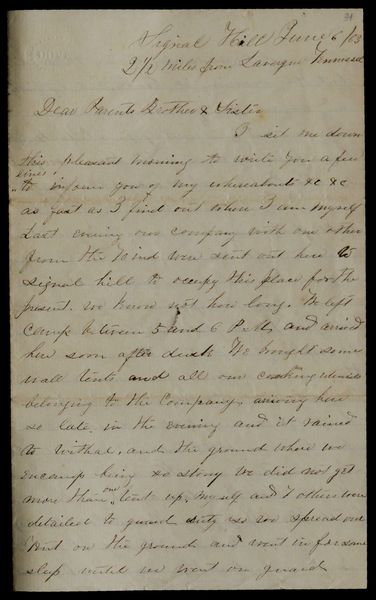 31
Signal Hill June 6 /63
2 1/2 Miles from Lavergne Tennessee
Dear Parents Brother & Sister
I sit me down
this pleasant morning to write you a few
lines,
to inform you of my whereabouts &c &c
as just as I find out where I am myself
Last evening our company with one other
from the 22nd were sent out here to
signal hill to occupy this place for the
present. we know not how long. We left
camp between 5 and 6 P.M. and arrived
here soon after dusk We brought some
wall tents and all our cooking utensils
belonging to the Company arriving here
so late in the evening and it rained
to withal, and the ground where we
encamp being so stony we did not get
more than one tent up, myself and 2 others were
detailed to guard duty so we spread our
tent on the ground and went in for some
sleep until we went on guard